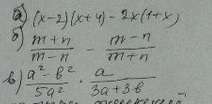 а) (x-2)(x+4) - 2x(1+x)
б) \frac{m+n}{m-n} - \frac{m-n}{m+n}
в) \frac{a²-b²}{5a²} \cdot \frac{a}{3a+3b}